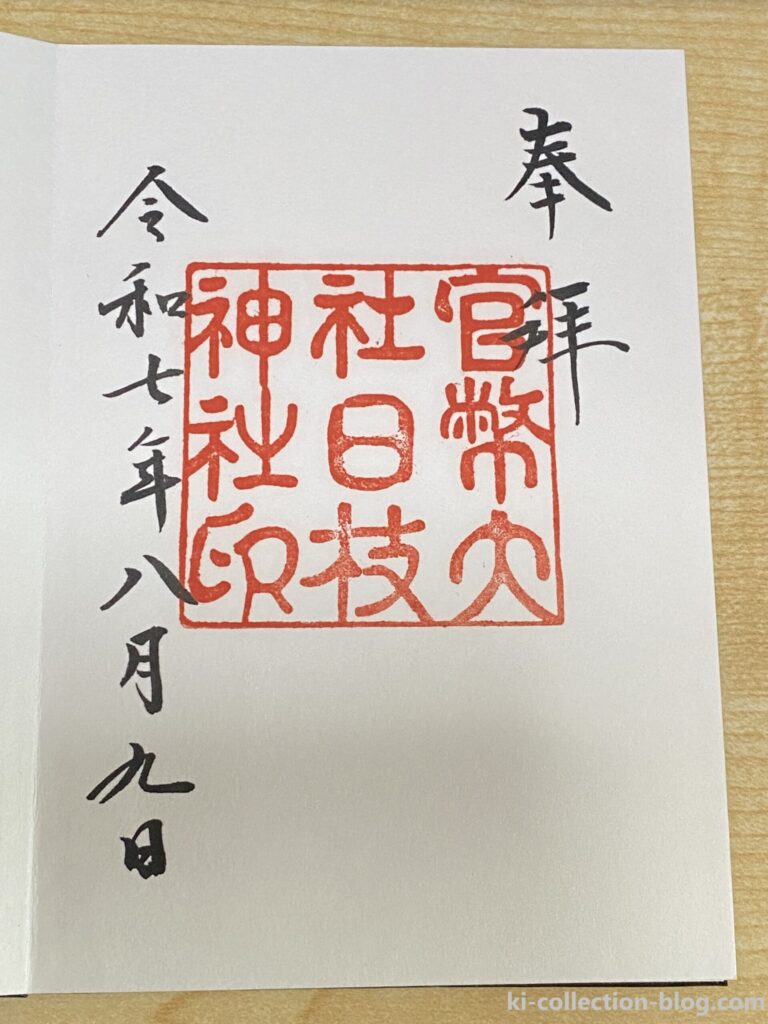 奉拝
官幣大
社日枝
神社印
令和七年八月九日
ki-collection-blog.com